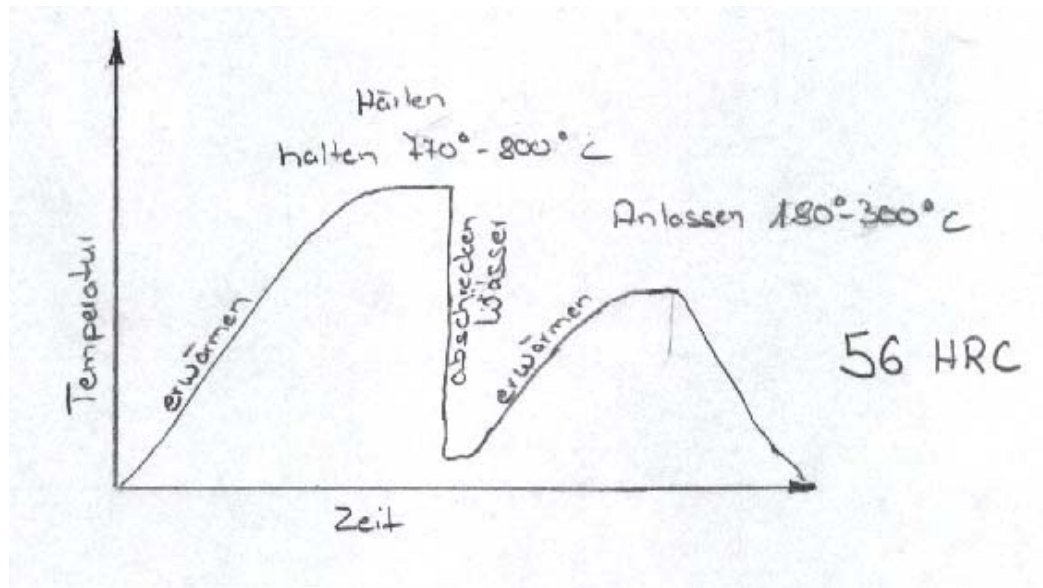 Härten
halten 770°-800° C
Anlassen 180°-300° C
Temperatur
erwärmen
abschrecken
Wasser
erwärmen
56 HRC
Zeit